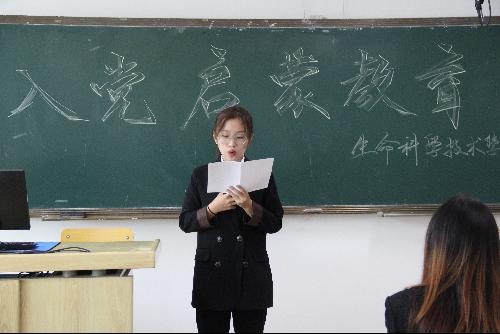 入党启蒙教育
生命科学技术学